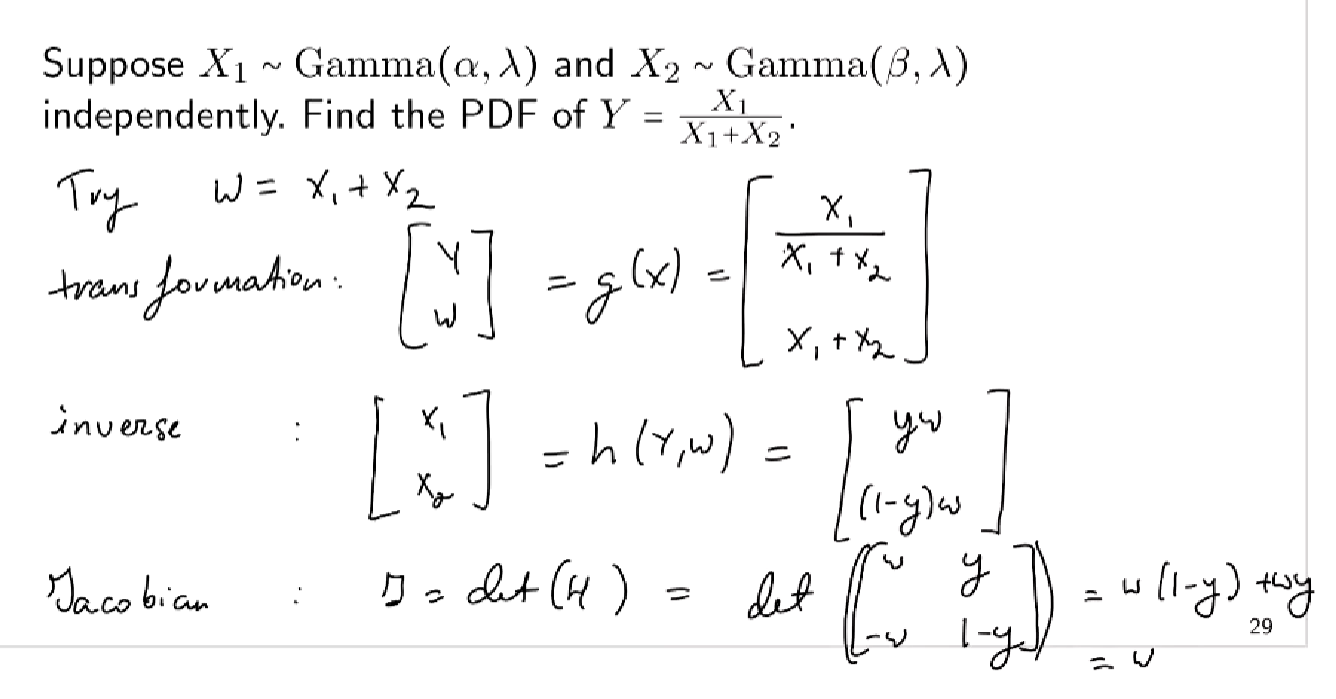 Suppose X₁ ~ Gamma(α, λ) and X₂ ~ Gamma(β, λ)
independently. Find the PDF of Y = X₁/(X₁+X₂).
Try W = X₁ + X₂
transformation: [Y; W] = g(x) = [X₁/(X₁ + X₂); X₁ + X₂]
inverse : [X₁; X₂] = h(Y,W) = [yw; (1-y)w]
Jacobian : J = det(H) = det([w y; -w 1-y]) = w(1-y) + wy
29
= w